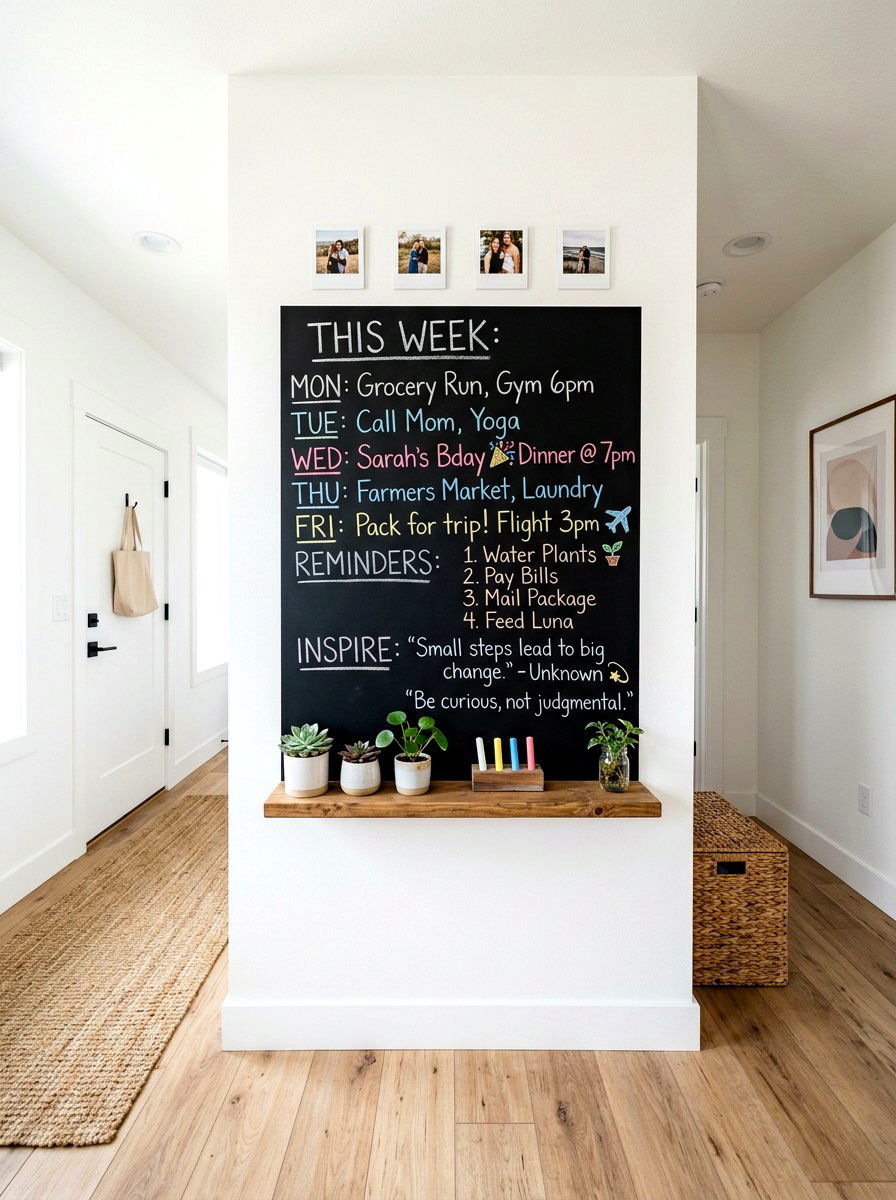 THIS WEEK:
MON: Grocery Run, Gym 6pm
TUE: Call Mom, Yoga
WED: Sarah's Bday 🎉 Dinner @ 7pm
THU: Farmers Market, Laundry
FRI: Pack for trip! Flight 3pm ✈
REMINDERS: 1. Water Plants 🪴
2. Pay Bills
3. Mail Package
4. Feed Luna
INSPIRE: "Small steps lead to big
change." - Unknown 💫
"Be curious, not judgmental."